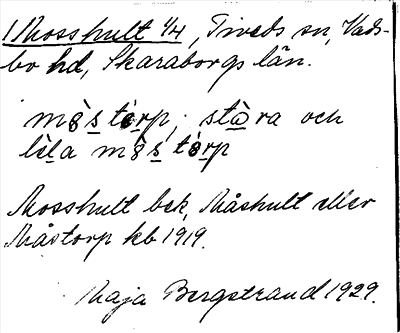 1 Mosshult 1/4, Tiveds sn, Vads-
bo hd, Skaraborgs län.
mòstórp, stòra och
lìla mòstórp
Mosshult bek, Måshult eller
Måstorp kb 1919.
Maja Bergstrand 1929.